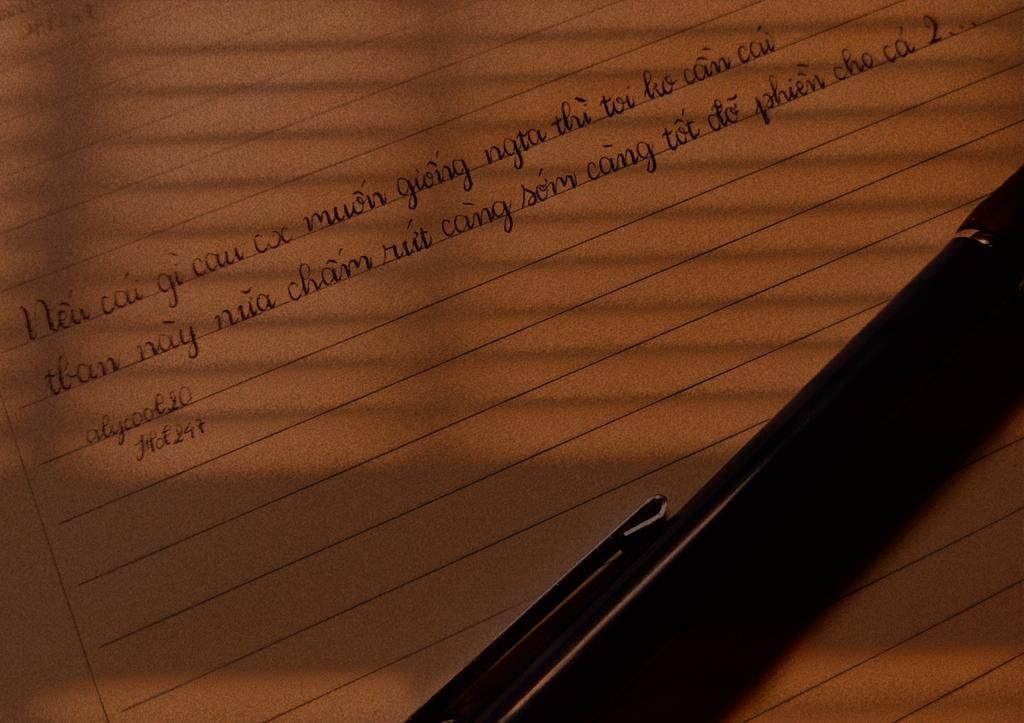 Nếu cái gì cau cx muốn giống ngta thì toi ko cần cái
tban này nữa chấm rứt càng sớm càng tốt đỡ phiền cho cả 2...
alycool20
Hot247